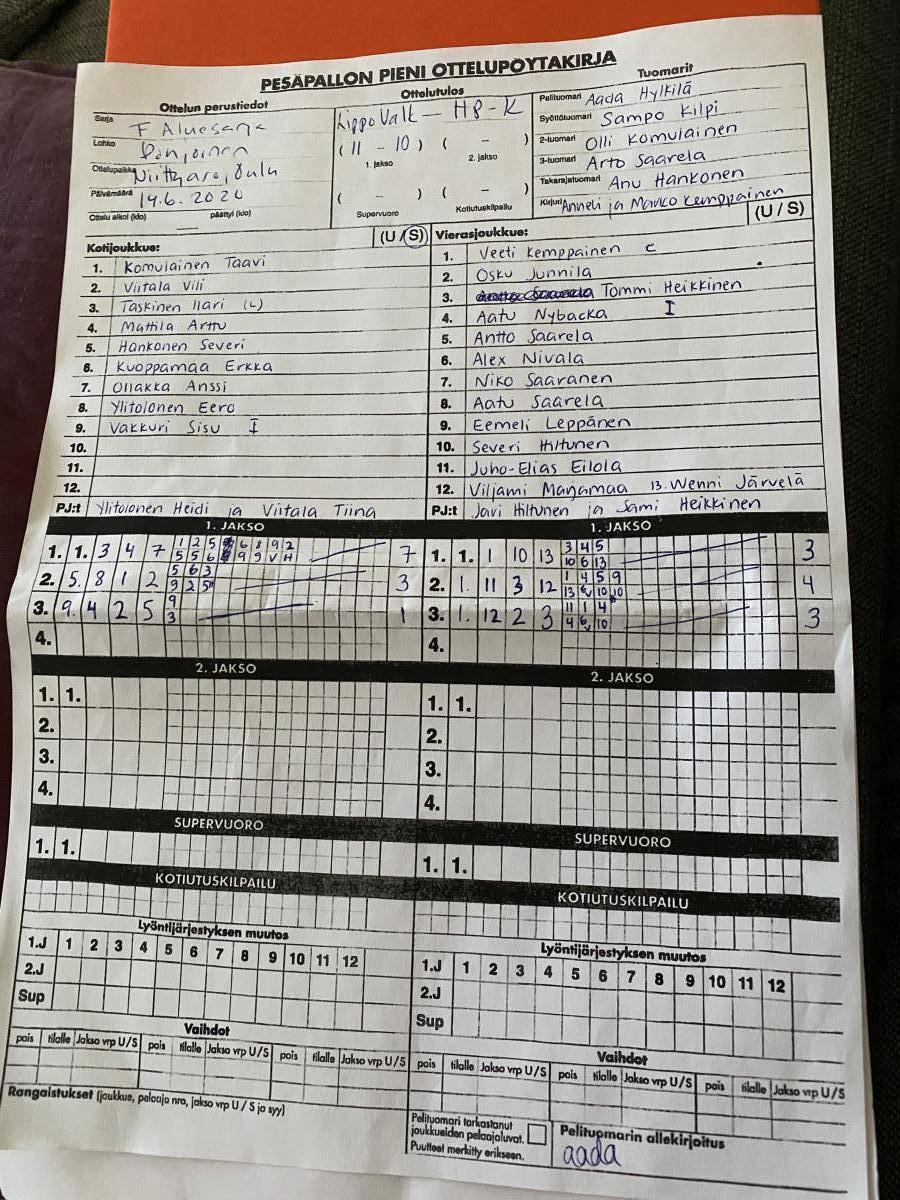 PESÄPALLON PIENI OTTELUPÖYTÄKIRJA
Ottelun perustiedot
Sarja F Aluesarja
Lohko Pohjoinen
Ottelupaikka Niittyaro, Oulu
Päivämäärä 14.6.2020
Ottelu alkoi (klo) päättyi (klo)
Ottelutulos
LippoValk — HP-K
(11 - 10) ( - )
1. jakso 2. jakso
( - ) ( - )
Supervuoro Kotiutuskilpailu
Tuomarit
Pelituomari Aada Hylkilä
Syöttötuomari Sampo Kilpi
2-tuomari Olli Komulainen
3-tuomari Arto Saarela
Takarajatuomari Anu Hankonen
Kirjuri Anneli ja Marko Kemppainen
Kotijoukkue: (U/S)
1. Komulainen Taavi
2. Viitala Vili
3. Taskinen Ilari (L)
4. Mattila Arttu
5. Hankonen Severi
6. Kuoppamaa Erkka
7. Ollakka Anssi
8. Ylitolonen Eero
9. Vakkuri Sisu I
10.
11.
12.
PJ:t Ylitolonen Heidi ja Viitala Tiina
Vierasjoukkue: (U/S)
1. Veeti Kemppainen C
2. Osku Junnila
3. Tommi Heikkinen
4. Aatu Nybacka I
5. Antto Saarela
6. Alex Nivala
7. Niko Saaranen
8. Aatu Saarela
9. Eemeli Leppänen
10. Severi Hiltunen
11. Juho-Elias Eilola
12. Viljami Marjamaa 13. Wenni Järvelä
PJ:t Javi Hiltunen ja Sami Heikkinen
1. JAKSO
1. 1. 3 4 7 7
2. 5. 8 1 2 5 6 3 3
3. 9. 4 2 5 9 1
3
4.
2. JAKSO
1. 1.
2.
3.
4.
SUPERVUORO
1. 1.
KOTIUTUSKILPAILU
Lyöntijärjestyksen muutos
1.J 1 2 3 4 5 6 7 8 9 10 11 12
2.J
Sup
Vaihdot
pois tilalle Jakso vrp U/S pois tilalle Jakso vrp U/S pois tilalle Jakso vrp U/S
Rangaistukset (joukkue, pelaaja nro, jakso vrp U / S ja syy)
1. JAKSO
1. 1. 1 10 13 3 4 5 3
10 6 13
2. 1. 11 3 12 1 4 5 9 4
3. 1. 12 2 3 11 1 4 3
4.
2. JAKSO
1. 1.
2.
3.
4.
SUPERVUORO
1. 1.
KOTIUTUSKILPAILU
Lyöntijärjestyksen muutos
1.J 1 2 3 4 5 6 7 8 9 10 11 12
2.J
Sup
Vaihdot
pois tilalle Jakso vrp U/S pois tilalle Jakso vrp U/S pois tilalle Jakso vrp U/S
Pelituomari tarkastanut
joukkueiden pelaajaluvat.
Puutteet merkitty erikseen.
Pelituomarin allekirjoitus
aada